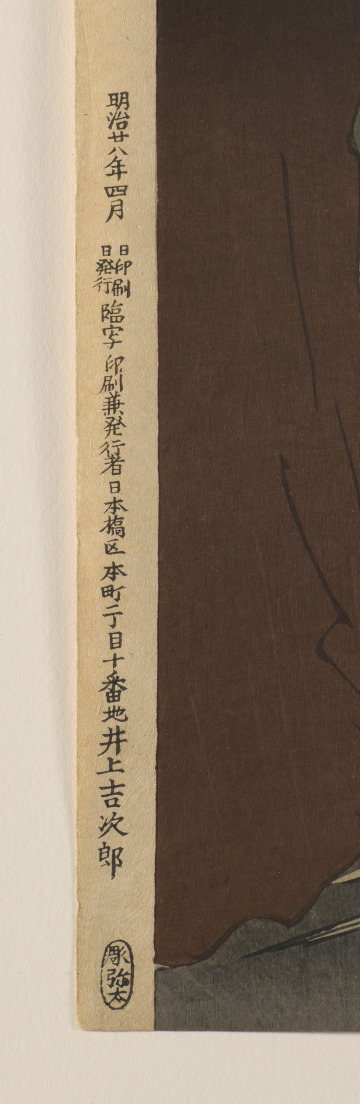 明治廿八年四月
日印刷
日発行
臨写印刷兼発行者日本橋区本町二丁目十番地井上吉次郎
彫弥太